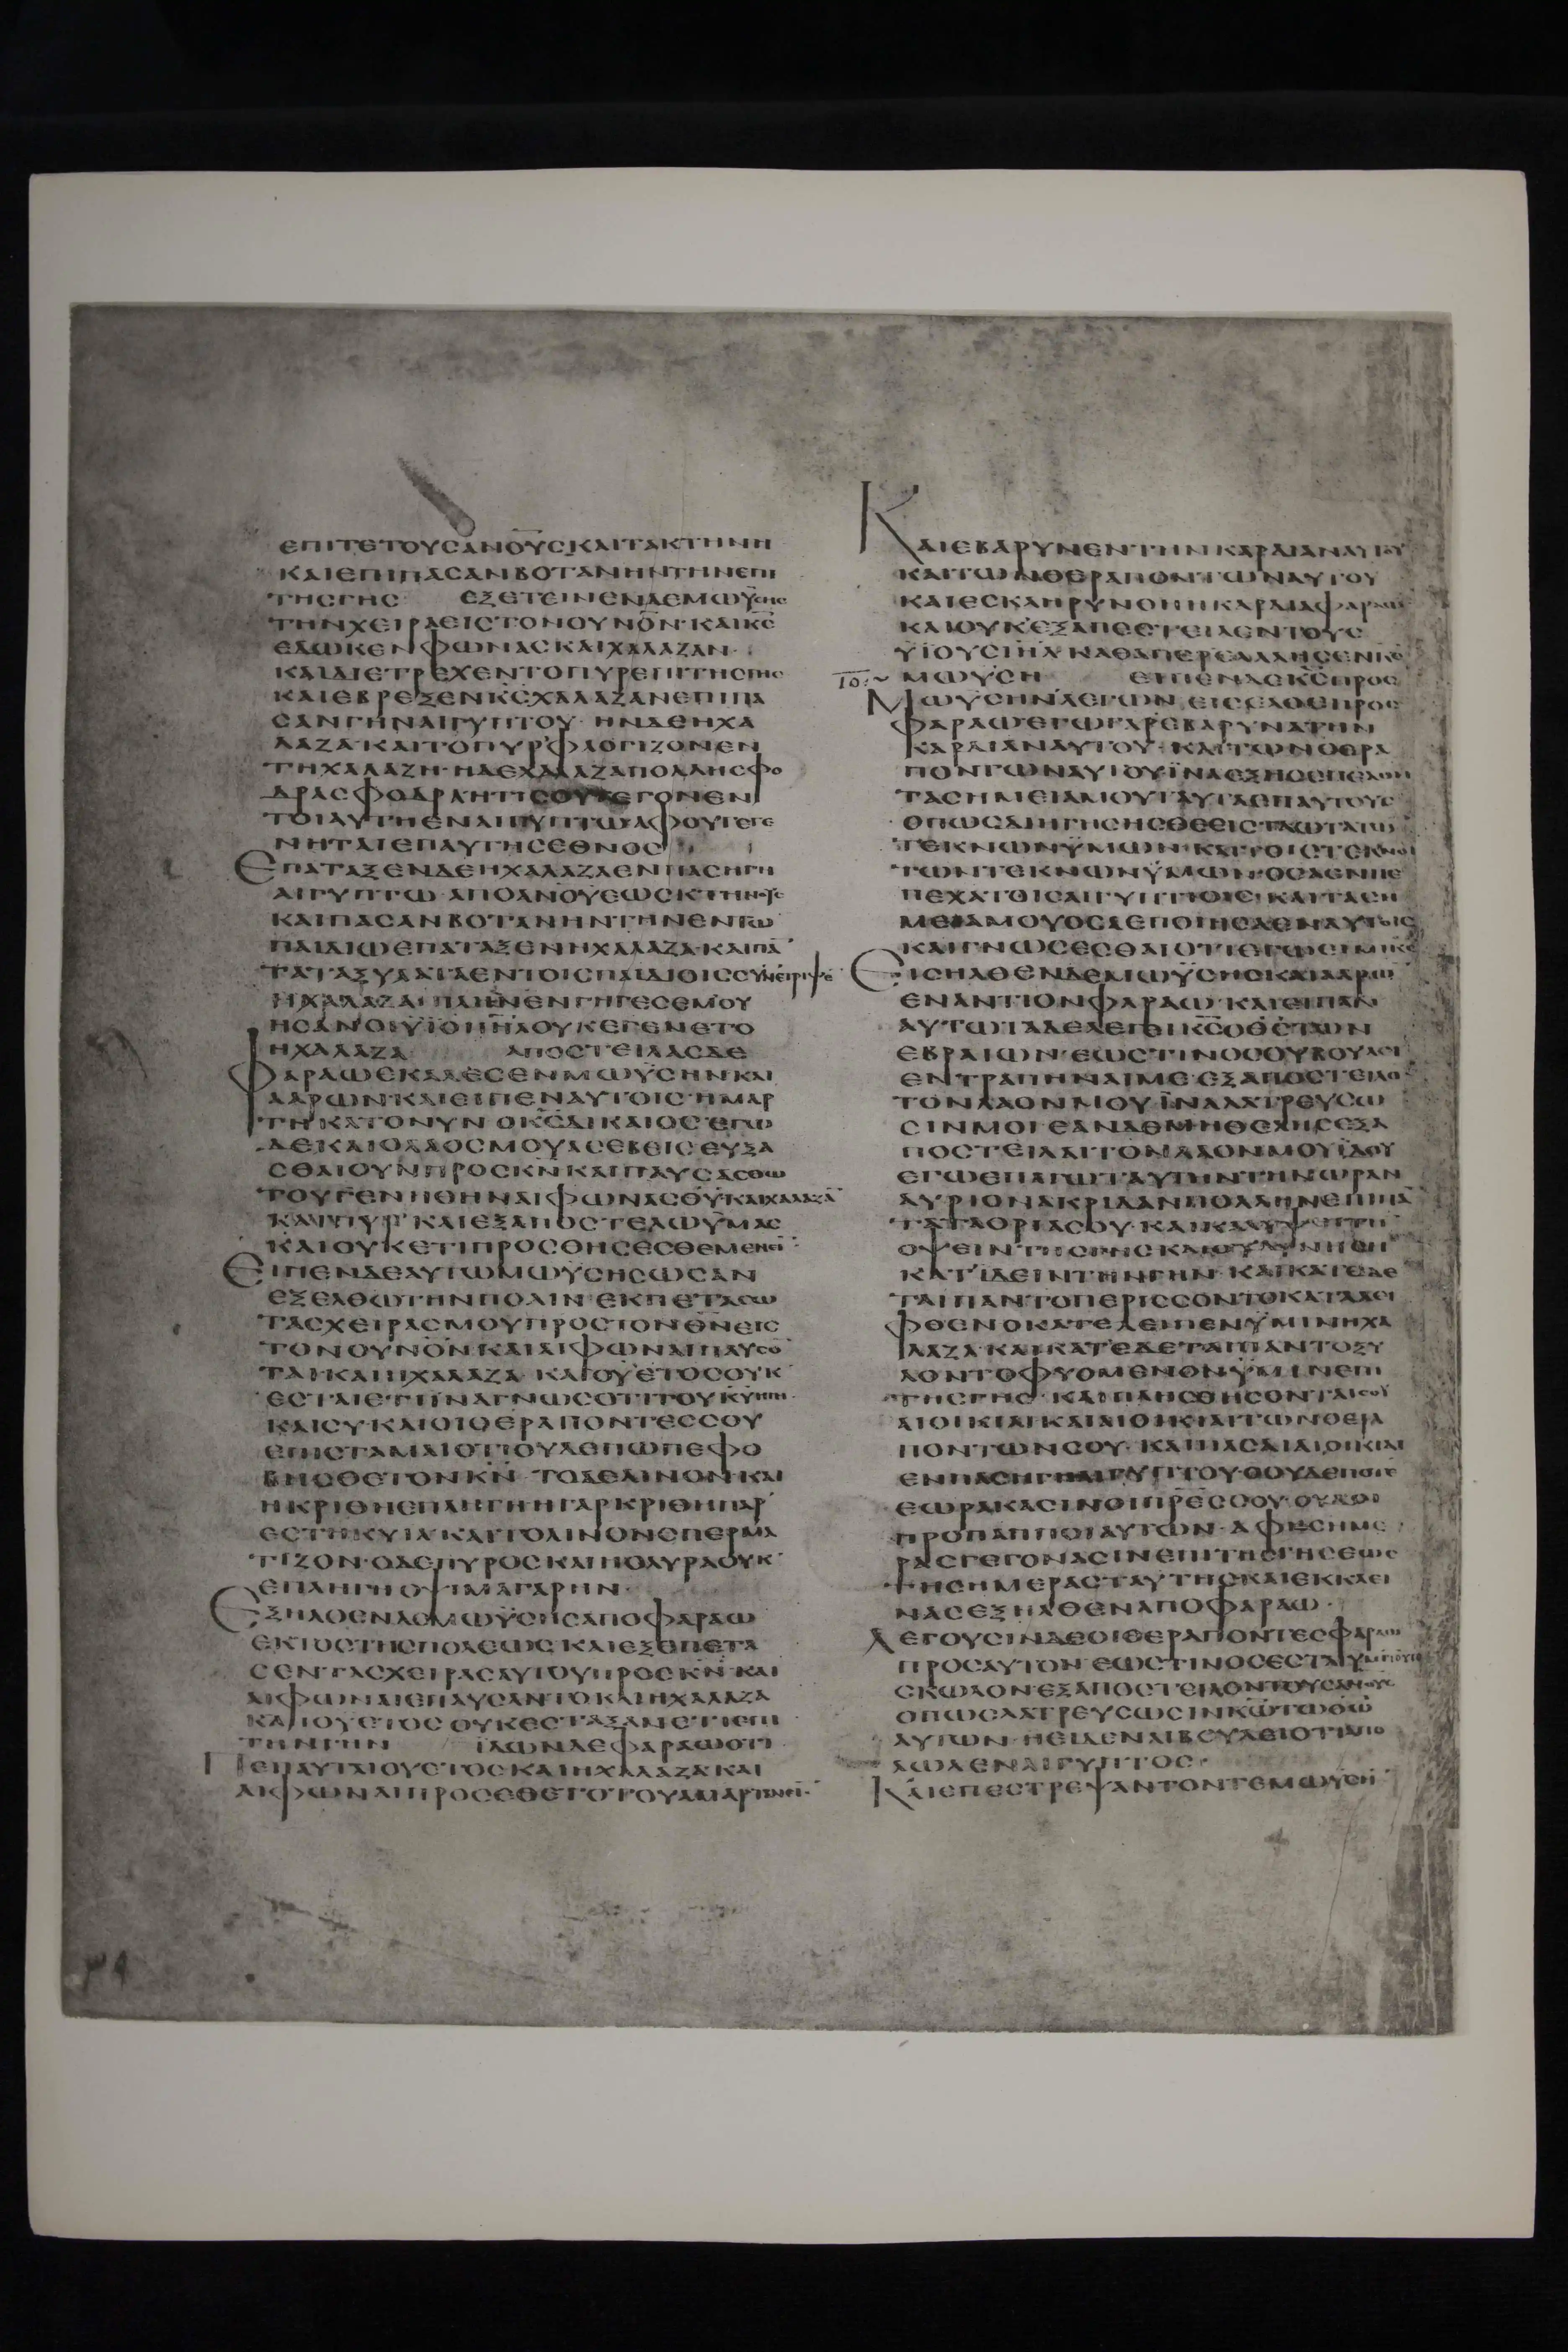 ΕΠΙΤΕΤΟΥΣΑΝΟΥΣΚΑΙΤΑΚΤΗΝΗ
ΚΑΙΕΠΙΠΑΣΑΝΒΟΤΑΝΗΝΤΗΝΕΠΙ
ΤΗΣΓΗΣ ΕΞΕΤΕΙΝΕΝΔΕΜΩΫΣΗΣ
ΤΗΝΧΕΙΡΑΕΙΣΤΟΝΟΥΝΟΝ·ΚΑΙΚΣ
ΕΔΩΚΕΝΦΩΝΑΣΚΑΙΧΑΛΑΖΑΝ·
ΚΑΙΔΙΕΤΡΕΧΕΝΤΟΠΥΡΕΠΙΤΗΣΓΗΣ
ΚΑΙΕΒΡΕΞΕΝΚΣΧΑΛΑΖΑΝΕΠΙΠΑ
ΣΑΝΓΗΝΑΙΓΥΠΤΟΥ·ΗΝΔΕΗΧΑ
ΛΑΖΑΚΑΙΤΟΠΥΡΦΛΟΓΙΖΟΝΕΝ
ΤΗΧΑΛΑΖΗ·ΗΔΕΧΑΛΑΖΑΠΟΛΛΗΣΦΟ
ΔΡΑΣΦΟΔΡΑΗΤΙΣΟΥΓΕΓΟΝΕΝ
ΤΟΙΑΥΤΗΕΝΑΙΓΥΠΤΩΑΦΟΥΓΕΓΕ
ΝΗΤΑΙΕΠΑΥΤΗΣΕΘΝΟΣ
ΕΠΑΤΑΞΕΝΔΕΗΧΑΛΑΖΑΕΝΠΑΣΗΓΗ
ΑΙΓΥΠΤΩ·ΑΠΟΑΝΟΥΕΩΣΚΤΗΝΟΥΣ
ΚΑΙΠΑΣΑΝΒΟΤΑΝΗΝΤΗΝΕΝΤΩ
ΠΑΙΔΙΩΕΠΑΤΑΞΕΝΗΧΑΛΑΖΑ·ΚΑΙΠΑ
ΤΑΤΑΞΥΛΑΤΑΕΝΤΟΙΣΠΑΙΔΙΟΙΣΣΥΝΕΤΡΙΨΕ
ΗΧΑΛΑΖΑ·ΠΛΗΝΕΝΓΗΓΕΣΕΜΟΥ
ΗΣΑΝΟΙΫΙΟΙΙΗΛΟΥΚΕΓΕΝΕΤΟ
ΗΧΑΛΑΖΑ ΑΠΟΣΤΕΙΛΑΣΔΕ
ΦΑΡΑΩΕΚΑΛΕΣΕΝΜΩΫΣΗΝΚΑΙ
ΑΑΡΩΝ·ΚΑΙΕΙΠΕΝΑΥΤΟΙΣ·ΗΜΑΡ
ΤΗΚΑΤΟΝΥΝ·ΟΚΣΔΙΚΑΙΟΣ·ΕΓΩ
ΔΕΚΑΙΟΛΑΟΣΜΟΥΑΣΕΒΕΙΣ·ΕΥΞΑ
ΣΘΑΙΟΥΝΠΡΟΣΚΝΚΑΙΠΑΥΣΑΣΘΩ
ΤΟΥΓΕΝΗΘΗΝΑΙΦΩΝΑΣΘΥΚΑΙΧΑΛΑΖΑ
ΚΑΙΠΥΡ·ΚΑΙΕΞΑΠΟΣΤΕΛΩΫΜΑΣ
ΚΑΙΟΥΚΕΤΙΠΡΟΣΘΗΣΕΣΘΕΜΕΝΕΙ
ΕΙΠΕΝΔΕΑΥΤΩΜΩΫΣΗΣΩΣΑΝ
ΕΞΕΛΘΩΤΗΝΠΟΛΙΝ·ΕΚΠΕΤΑΣΩ
ΤΑΣΧΕΙΡΑΣΜΟΥΠΡΟΣΤΟΝΘΝΕΙΣ
ΤΟΝΟΥΝΟΝΚΑΙΑΙΦΩΝΑΙΠΑΥΣΟ
ΤΑΙ·ΚΑΙΗΧΑΛΑΖΑ·ΚΑΙΟΥΕΤΟΣΟΥΚ
ΕΣΤΑΙΕΤΙΙΝΑΓΝΩΣΟΤΙΤΟΥΚΥΗΓΗ·
ΚΑΙΣΥ·ΚΑΙΟΙΘΕΡΑΠΟΝΤΕΣΣΟΥ
ΕΠΙΣΤΑΜΑΙΟΤΙΟΥΔΕΠΩΠΕΦΟ
ΒΗΣΘΕΤΟΝΚΝ·ΤΟΔΕΛΙΝΟΝΚΑΙ
ΗΚΡΙΘΗΕΠΛΗΓΗΗΓΑΡΚΡΙΘΗΠΑΡ
ΕΣΤΗΚΥΙΑ·ΚΑΙΤΟΛΙΝΟΝΣΠΕΡΜΑ
ΤΙΖΟΝ·ΟΔΕΠΥΡΟΣΚΑΙΗΟΛΥΡΑΟΥΚ
ΕΠΛΗΓΗΟΨΙΜΑΓΑΡΗΝ·
ΕΞΗΛΘΕΝΔΕΜΩΫΣΗΣΑΠΟΦΑΡΑΩ
ΕΚΤΟΣΤΗΣΠΟΛΕΩΣΚΑΙΕΞΕΠΕΤΑ
ΣΕΝΤΑΣΧΕΙΡΑΣΑΥΤΟΥΠΡΟΣΚΝ·ΚΑΙ
ΑΙΦΩΝΑΙΕΠΑΥΣΑΝΤΟΚΑΙΗΧΑΛΑΖΑ
ΚΑΙΟΥΕΤΟΣΟΥΚΕΣΤΑΞΑΝΕΤΙΕΠΙ
ΤΗΝΓΗΝ ΙΔΩΝΔΕΦΑΡΑΩΟΤΙ
ΠΕΠΑΥΤΑΙΟΥΕΤΟΣΚΑΙΗΧΑΛΑΖΑΚΑΙ
ΑΙΦΩΝΑΙΠΡΟΣΕΘΕΤΟΤΟΥΑΜΑΡΤΑΝΕΙ·
ΚΑΙΕΒΑΡΥΝΕΝΤΗΝΚΑΡΔΙΑΝΑΥΤΟΥ
ΚΑΙΤΩΝΘΕΡΑΠΟΝΤΩΝΑΥΤΟΥ
ΚΑΙΕΣΚΛΗΡΥΝΘΗΗΚΑΡΔΙΑΦΑΡΑΩ
ΚΑΙΟΥΚΕΞΑΠΕΣΤΕΙΛΕΝΤΟΥΣ
ΫΙΟΥΣΙΗΛΚΑΘΑΠΕΡΕΛΑΛΗΣΕΝΚΣ
ΜΩΫΣΗ ΕΙΠΕΝΔΕΚΣΠΡΟΣ
ΜΩΫΣΗΝΛΕΓΩΝ·ΕΙΣΕΛΘΕΠΡΟΣ
ΦΑΡΑΩΕΓΩΓΑΡΕΒΑΡΥΝΑΤΗΝ
ΚΑΡΔΙΑΝΑΥΤΟΥ·ΚΑΙΤΩΝΘΕΡΑ
ΠΟΝΤΩΝΑΥΤΟΥΪΝΑΕΞΗΣΕΠΕΛΘΗ
ΤΑΣΗΜΕΙΑΜΟΥΤΑΥΤΑΕΠΑΥΤΟΥΣ
ΟΠΩΣΔΙΗΓΗΣΗΣΘΕΕΙΣΤΑΩΤΑΤΩ
ΤΕΚΝΩΝΫΜΩΝ·ΚΑΙΤΟΙΣΤΕΚΝΟΙ
ΤΩΝΤΕΚΝΩΝΫΜΩΝ·ΟΣΑΕΝΠΕ
ΠΕΧΑΤΟΙΣΑΙΓΥΠΤΙΟΙΣ·ΚΑΙΤΑΣΗ
ΜΕΙΑΜΟΥΟΣΑΕΠΟΙΗΣΑΕΝΑΥΤΟΙΣ
ΚΑΙΓΝΩΣΕΣΘΑΙΟΤΙΕΓΩΕΙΜΙΚΣ
ΕΙΣΗΛΘΕΝΔΕΜΩΫΣΗΣΚΑΙΑΑΡΩ
ΕΝΑΝΤΙΟΝΦΑΡΑΩ·ΚΑΙΕΙΠΑΝ
ΑΥΤΩΤΑΔΕΛΕΓΕΙΚΣΟΘΣΤΩΝ
ΕΒΡΑΙΩΝ·ΕΩΣΤΙΝΟΣΟΥΒΟΥΛΕΙ
ΕΝΤΡΑΠΗΝΑΙΜΕ·ΕΞΑΠΟΣΤΕΙΛΟ
ΤΟΝΛΑΟΝΜΟΥ·ΪΝΑΛΑΤΡΕΥΣΩ
ΣΙΝΜΟΙ·ΕΑΝΔΕΜΗΘΕΛΗΣΕΞΑ
ΠΟΣΤΕΙΛΑΙΤΟΝΛΑΟΝΜΟΥΪΔΟΥ
ΕΓΩΕΠΑΓΩΤΑΥΤΗΝΤΗΝΩΡΑΝ
ΑΥΡΙΟΝΑΚΡΙΔΑΝΠΟΛΛΗΝΕΠΙΠΑ
ΤΑΤΑΟΡΙΑΣΟΥ·ΚΑΙΚΑΛΥΨΕΙΤΗ
ΟΨΕΙΝΤΗΣΓΗΣΚΑΙΟΥΔΥΝΗΣΗ
ΚΑΤΙΔΕΙΝΤΗΝΓΗΝ·ΚΑΙΚΑΤΕΔΕ
ΤΑΙΠΑΝΤΟΠΕΡΙΣΣΟΝΤΟΚΑΤΑΛΕΙ
ΦΘΕΝΟΚΑΤΕΛΕΙΠΕΝΫΜΙΝΗΧΑ
ΛΑΖΑ·ΚΑΙΚΑΤΕΔΕΤΑΙΠΑΝΤΟΞΥ
ΛΟΝΤΟΦΥΟΜΕΝΟΝΫΜΙΝΕΠΙ
ΤΗΣΓΗΣ·ΚΑΙΠΛΗΣΘΗΣΟΝΤΑΙΣΟΥ
ΑΙΟΙΚΙΑΙΚΑΙΑΙΟΙΚΙΑΙΤΩΝΘΕΡΑ
ΠΟΝΤΩΝΣΟΥ·ΚΑΙΠΑΣΑΙΑΙΟΙΚΙΑΙ
ΕΝΠΑΣΗΓΗΑΙΓΥΠΤΟΥ·ΟΟΥΔΕΠΟΤΕ
ΕΩΡΑΚΑΣΙΝΟΙΠΡΕΣΣΟΥ·ΟΥΔΟΙ
ΠΡΟΠΑΠΠΟΙΑΥΤΩΝ·ΑΦΗΣΗΜΕ
ΡΑΣΓΕΓΟΝΑΣΙΝΕΠΙΤΗΣΓΗΣΕΩΣ
ΤΗΣΗΜΕΡΑΣΤΑΥΤΗΣΚΑΙΕΚΚΛΕΙ
ΝΑΣΕΞΗΛΘΕΝΑΠΟΦΑΡΑΩ·
ΛΕΓΟΥΣΙΝΔΕΟΙΘΕΡΑΠΟΝΤΕΣΦΑΡΑΩ
ΠΡΟΣΑΥΤΟΝ·ΕΩΣΤΙΝΟΣΕΣΤΑΙ
ΣΚΩΛΟΝ·ΕΞΑΠΟΣΤΕΙΛΟΝΤΟΥΣΑΝΟΥΣ
ΟΠΩΣΛΑΤΡΕΥΣΩΣΙΝΚΩΤΩΘΩ
ΑΥΤΩΝ·ΗΕΙΔΕΝΑΙΒΟΥΛΕΙΟΤΙΑΠΟ
ΛΩΛΕΝΑΙΓΥΠΤΟΣ·
ΚΑΙΕΠΕΣΤΡΕΨΑΝΤΟΝΤΕΜΩΫΣΗ